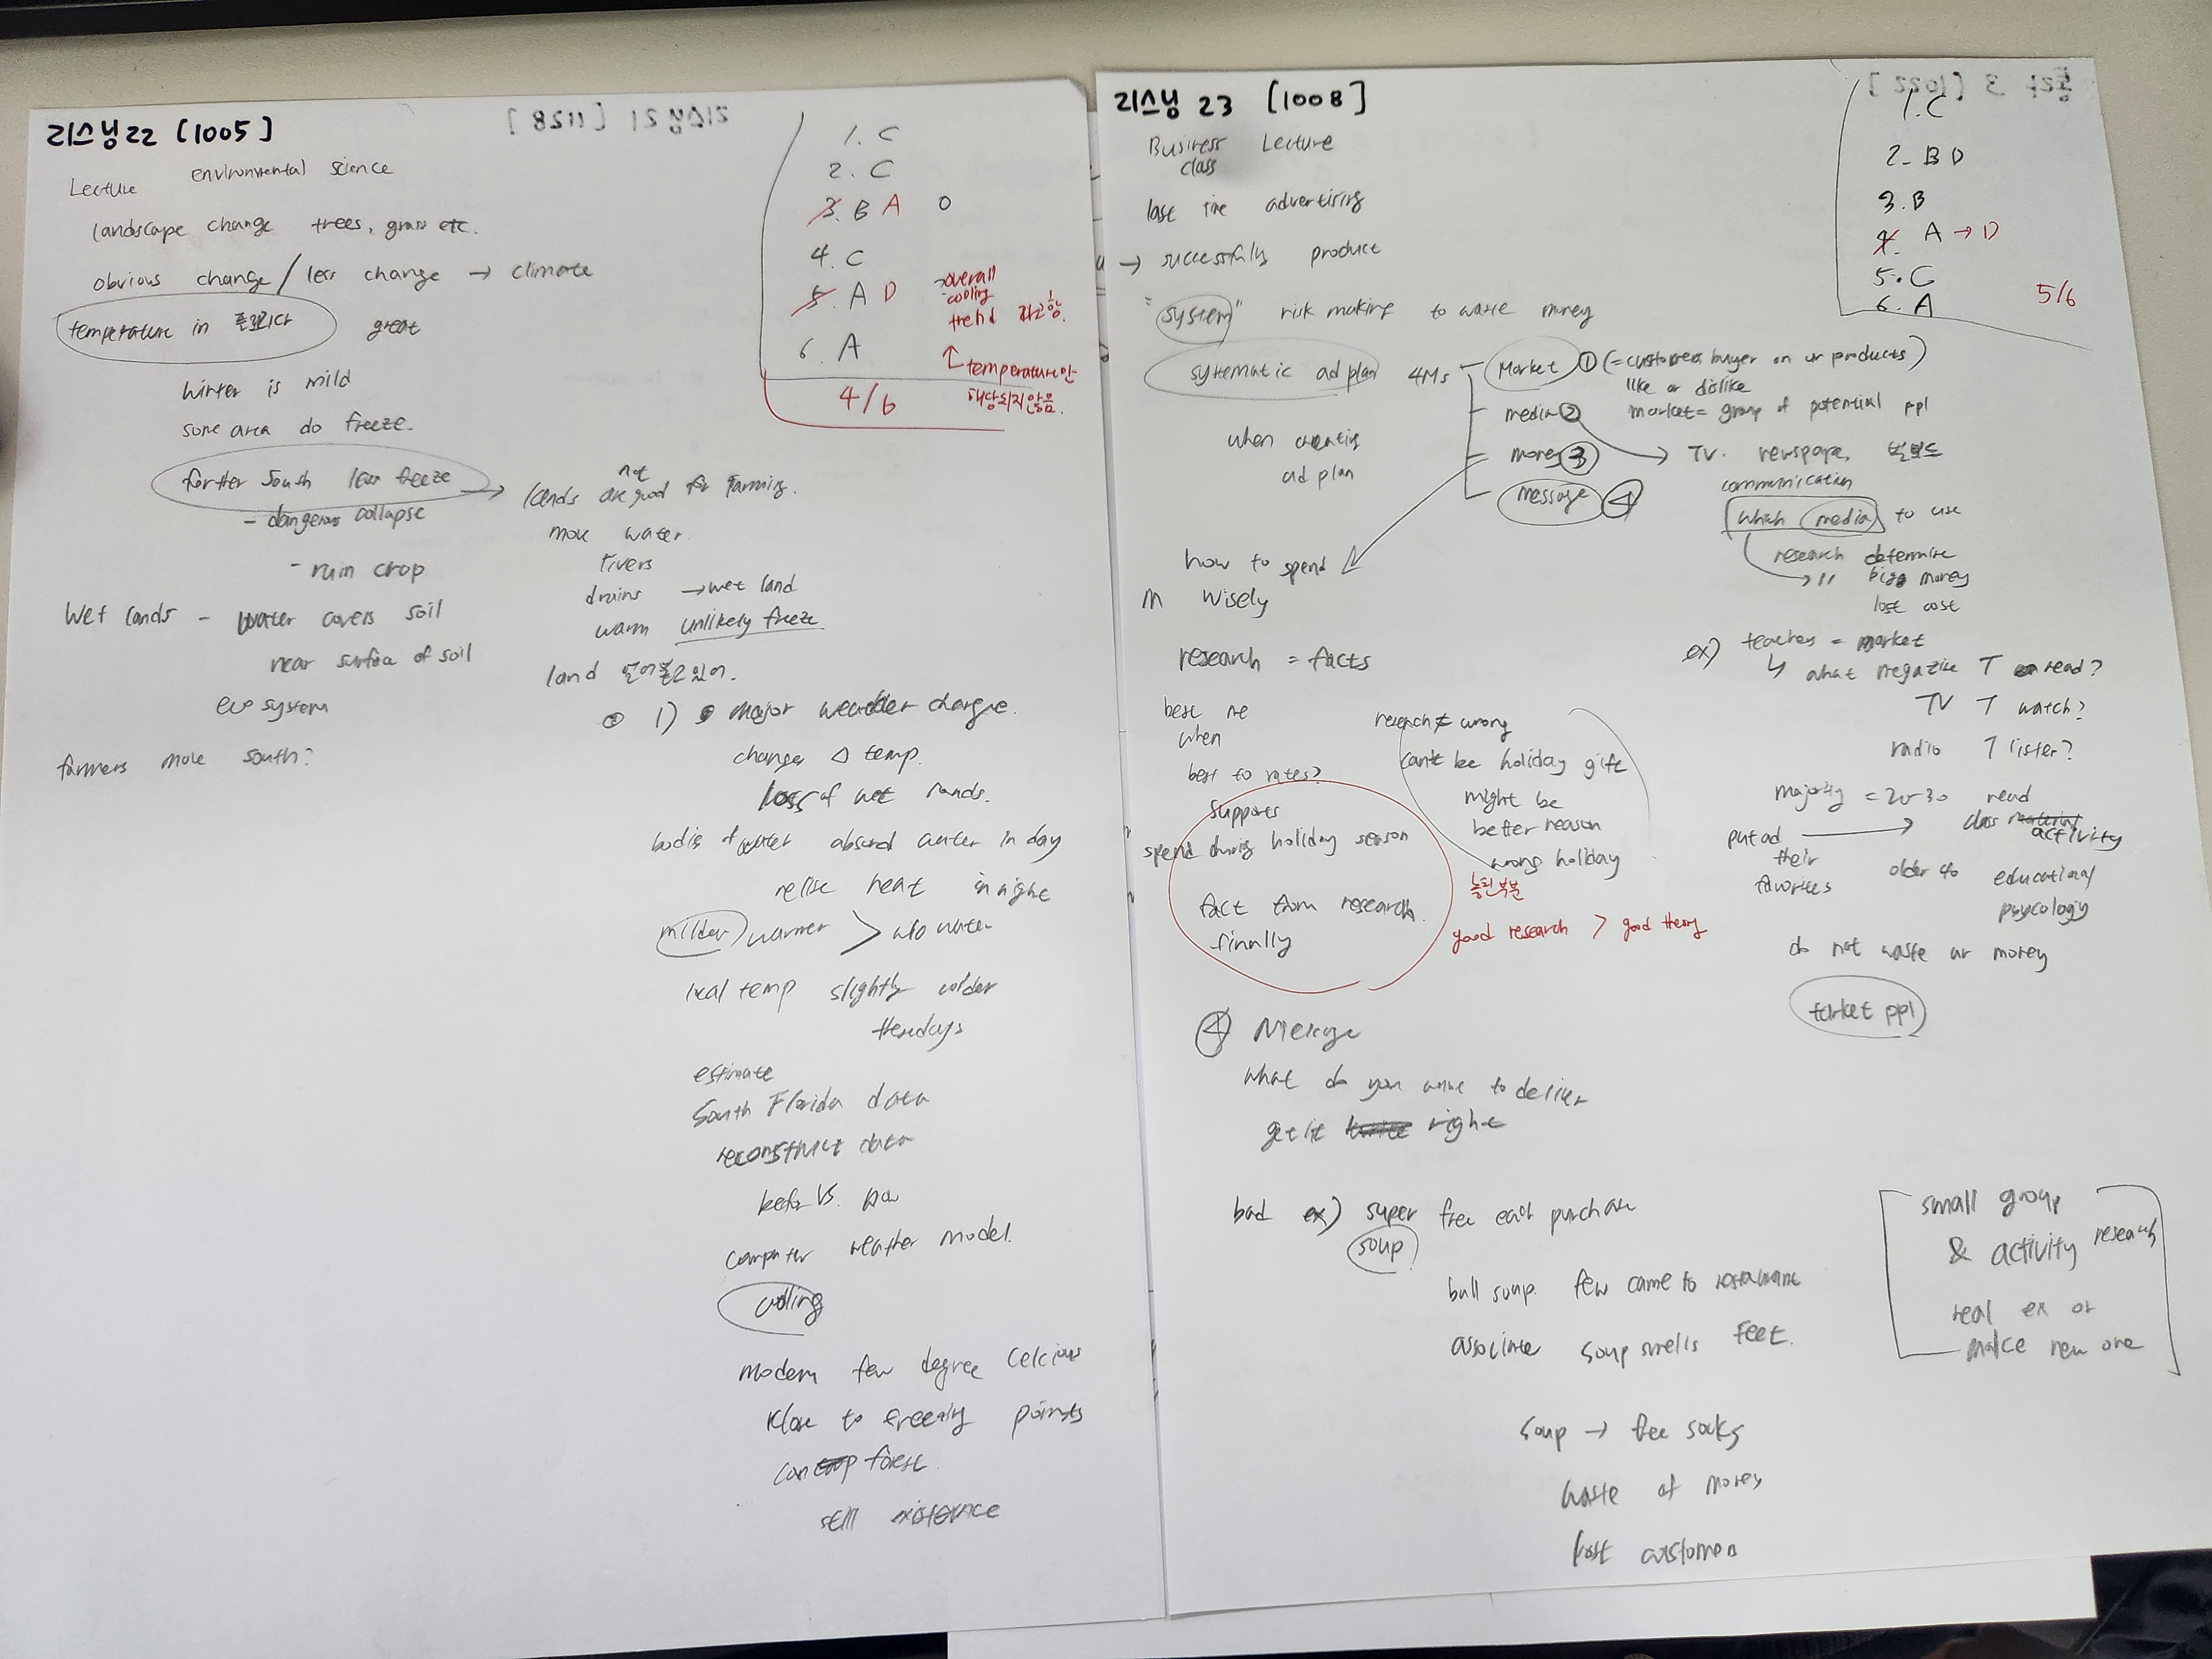 리스닝 22 [1005]
Lecture environmental science
landscape change trees, grass etc.
obvious change / less change → climate
temperature in 플로리다 great
winter is mild
some area do freeze.
farther south less freeze →
- dangerous collapse
- ruin crop
wet lands - water covers soil
near surface of soil
eco system
farmers move south?
not
lands are good for farming.
move water
rivers
drains → wet land
warm unlikely freeze
land 얼어붙고있어.
1) major weather change.
changes △ temp.
loss of wet lands.
bodies of water absord water in day
relise heat in night
milder warmer > w/o water
local temp slightly colder
thesedays
estimate
South Florida data
reconstruct data
before VS. now
computer weather model.
cooling
modern few degree celcious
close to freezing points
forest
still existence
1. C
2. C
3. B A O
4. C
5. A D → overall
cooling
trend
6. A
↑ temperature만
해당되지않음.
4/6
리스닝 21 [1128]
리스닝 23 [1008]
Business Lecture
class
last time advertising
→ successfully product
"system" risk making to waste money
systematic ad plan 4Ms
Market ① (= customers buyer on ur products)
like or dislike
media ② market = group of potential ppl
money ③ → TV. newspape, 빌보드
communication
message ④
when creating
ad plan
which media to use
research determine
→ " big money
lost cost
how to spend
m wisely
research = facts
best me
when
best to rates?
supports
spend during holiday season
fact from research.
finally
research ≠ wrong
can't be holiday gift
might be
better reason
wrong holiday
놓친부분
good research > good theory
ex) teaches = market
↳ what megazine T read?
TV T watch?
radio T listen?
majority = 20-30 read
put ad → class activity
their
favorites older 40 educational
psycology
do not waste ur money
tarket ppl
④ Message
what do you want to deliver
get it right
bad ex) super free each purchase
soup
bull soup. few came to restaurant
associate soup smells feet.
soup → free socks
waste of money
lost customers
small group
& activity research
real ex or
make new one
1. C
2. B D
3. B
4. A → D
5. C
6. A
5/6
독해 3 [1022]